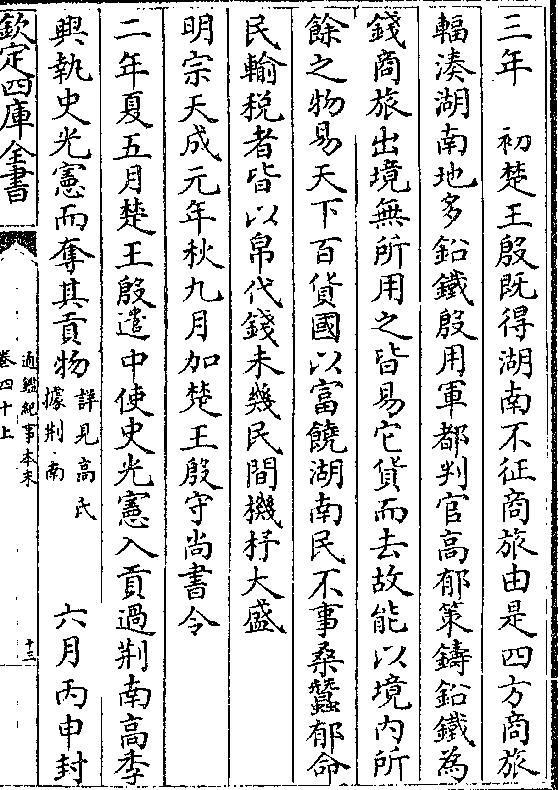 三年　初楚王殷既得湖南不征商旅由是四方商旅
輻湊湖南地多鉛鐵殷用軍都判官高郁策鑄鉛鐵為
錢商旅出境無所用之皆易它貨而去故能以境內所
餘之物易天下百貨國以富饒湖南民不事桑蠶郁命
民輸税者皆以帛代錢未幾民間機杼大盛
明宗天成元年秋九月加楚王殷守尚書令
二年夏五月楚王殷遣中使史光憲入貢過荆南高季
興執史光憲而奪其貢物詳見高氏據荆南　六月丙申封
欽定四庫全書
通鑑紀事本末
卷四十上
十三